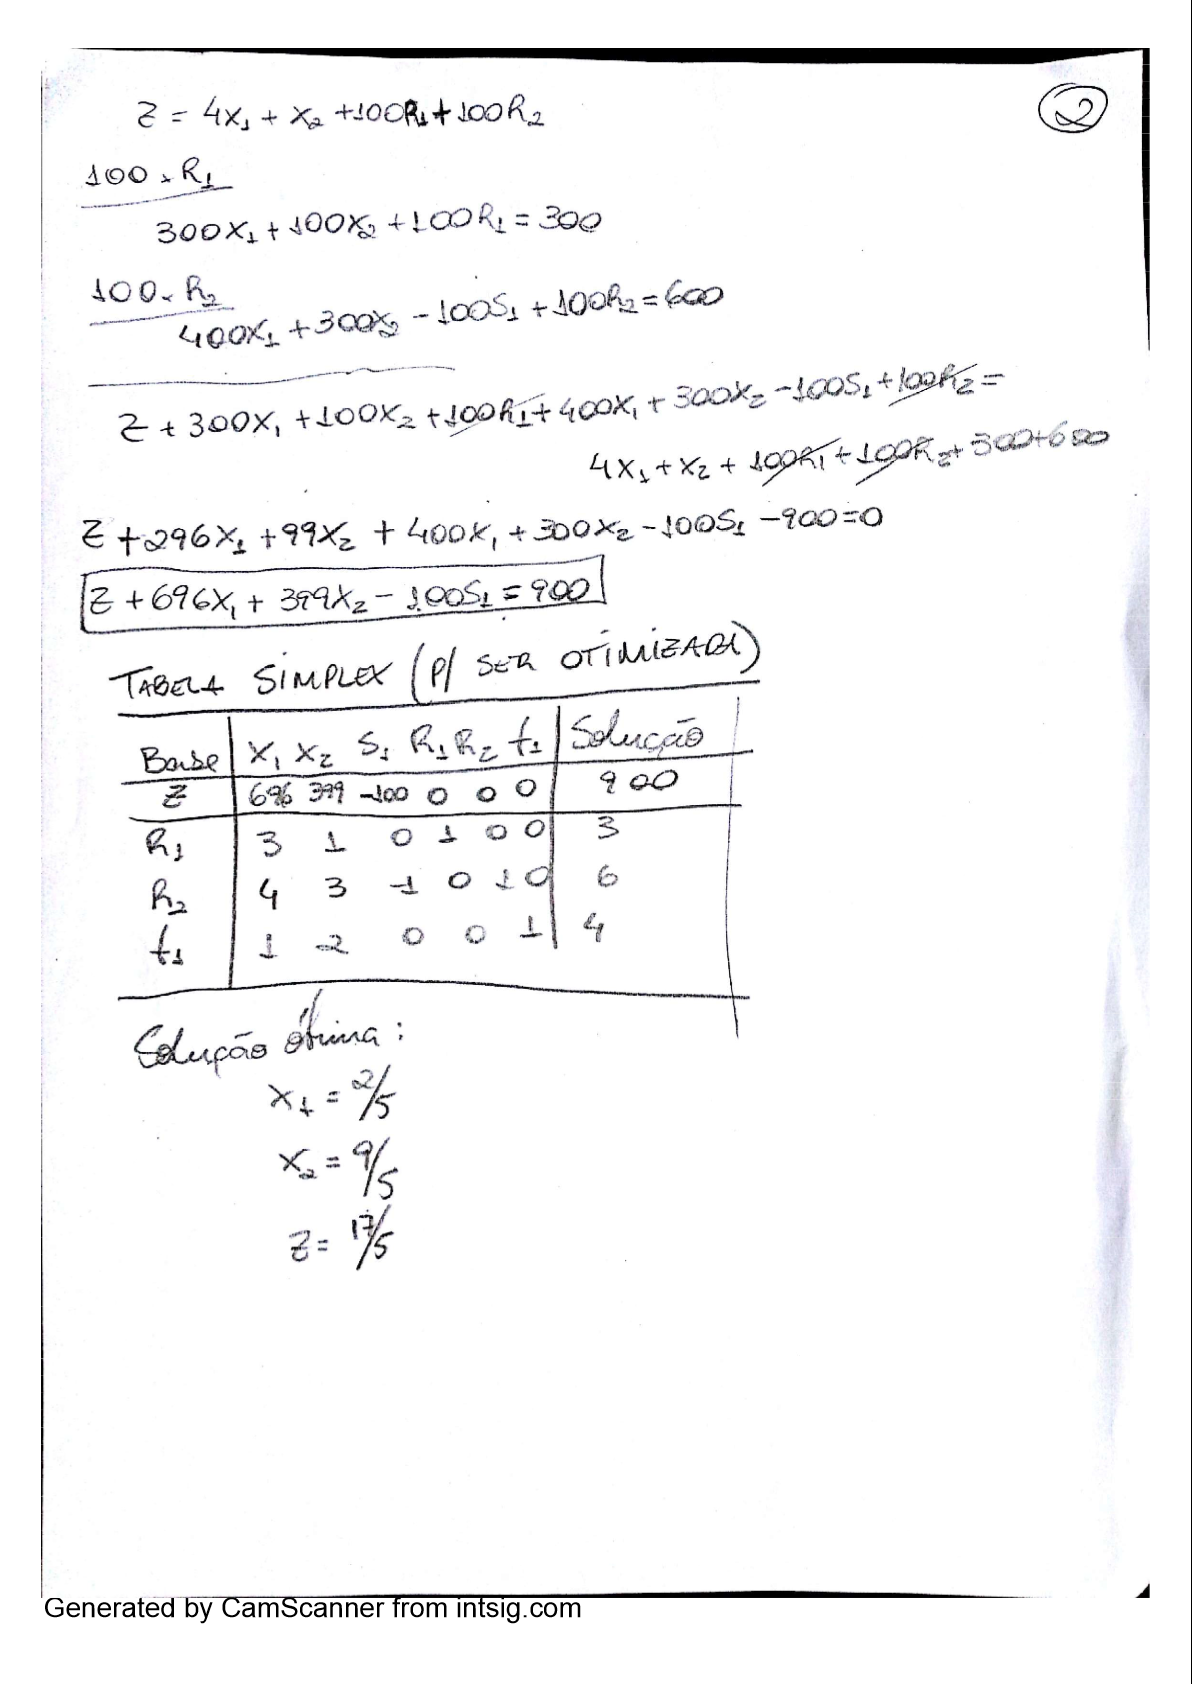 ②
Z = 4X₁ + X₂ + 100R₁ + 100R₂
100 × R₁
300X₁ + 100X₂ + 100R₁ = 300
100 × R₂
400X₁ + 300X₂ - 100S₁ + 100R₂ = 600
Z + 300X₁ + 100X₂ + 100R₁ + 400X₁ + 300X₂ - 100S₁ + 100R₂ =
4X₁ + X₂ + 100R₁ + 100R₂ + 300 + 600
Z + 296X₁ + 99X₂ + 400X₁ + 300X₂ - 100S₁ - 900 = 0
Z + 696X₁ + 399X₂ - 100S₁ = 900
TABELA SIMPLEX (P/ SER OTIMIZADA)
Base X₁ X₂ S₁ R₁ R₂ t₁ Solução
Z 696 399 -100 0 0 0 900
R₁ 3 1 0 1 0 0 3
R₂ 4 3 -1 0 1 0 6
t₁ 1 2 0 0 1 4
Solução ótima:
X₁ = 2/5
X₂ = 9/5
Z = 17/5
Generated by CamScanner from intsig.com